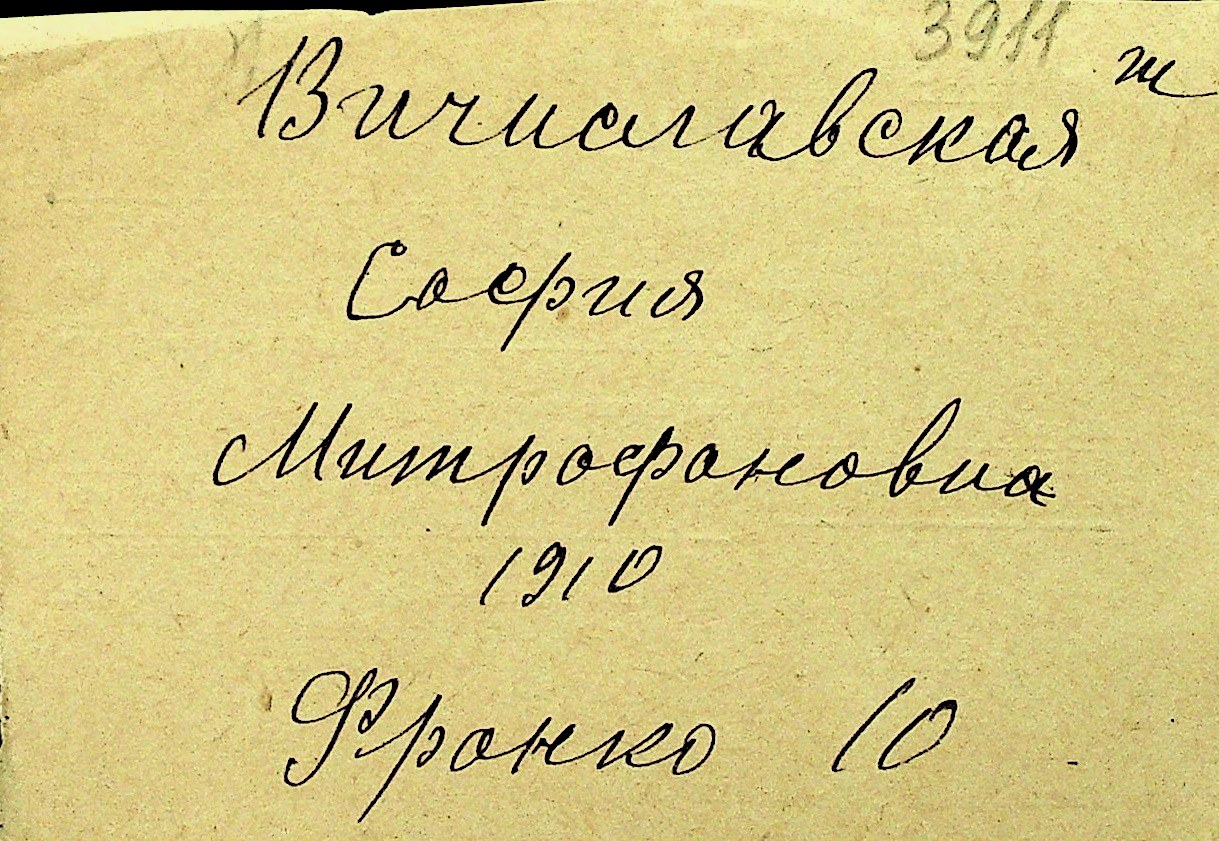 3911
Вичиславская т
София
Митрофановна
1910
Франко 10